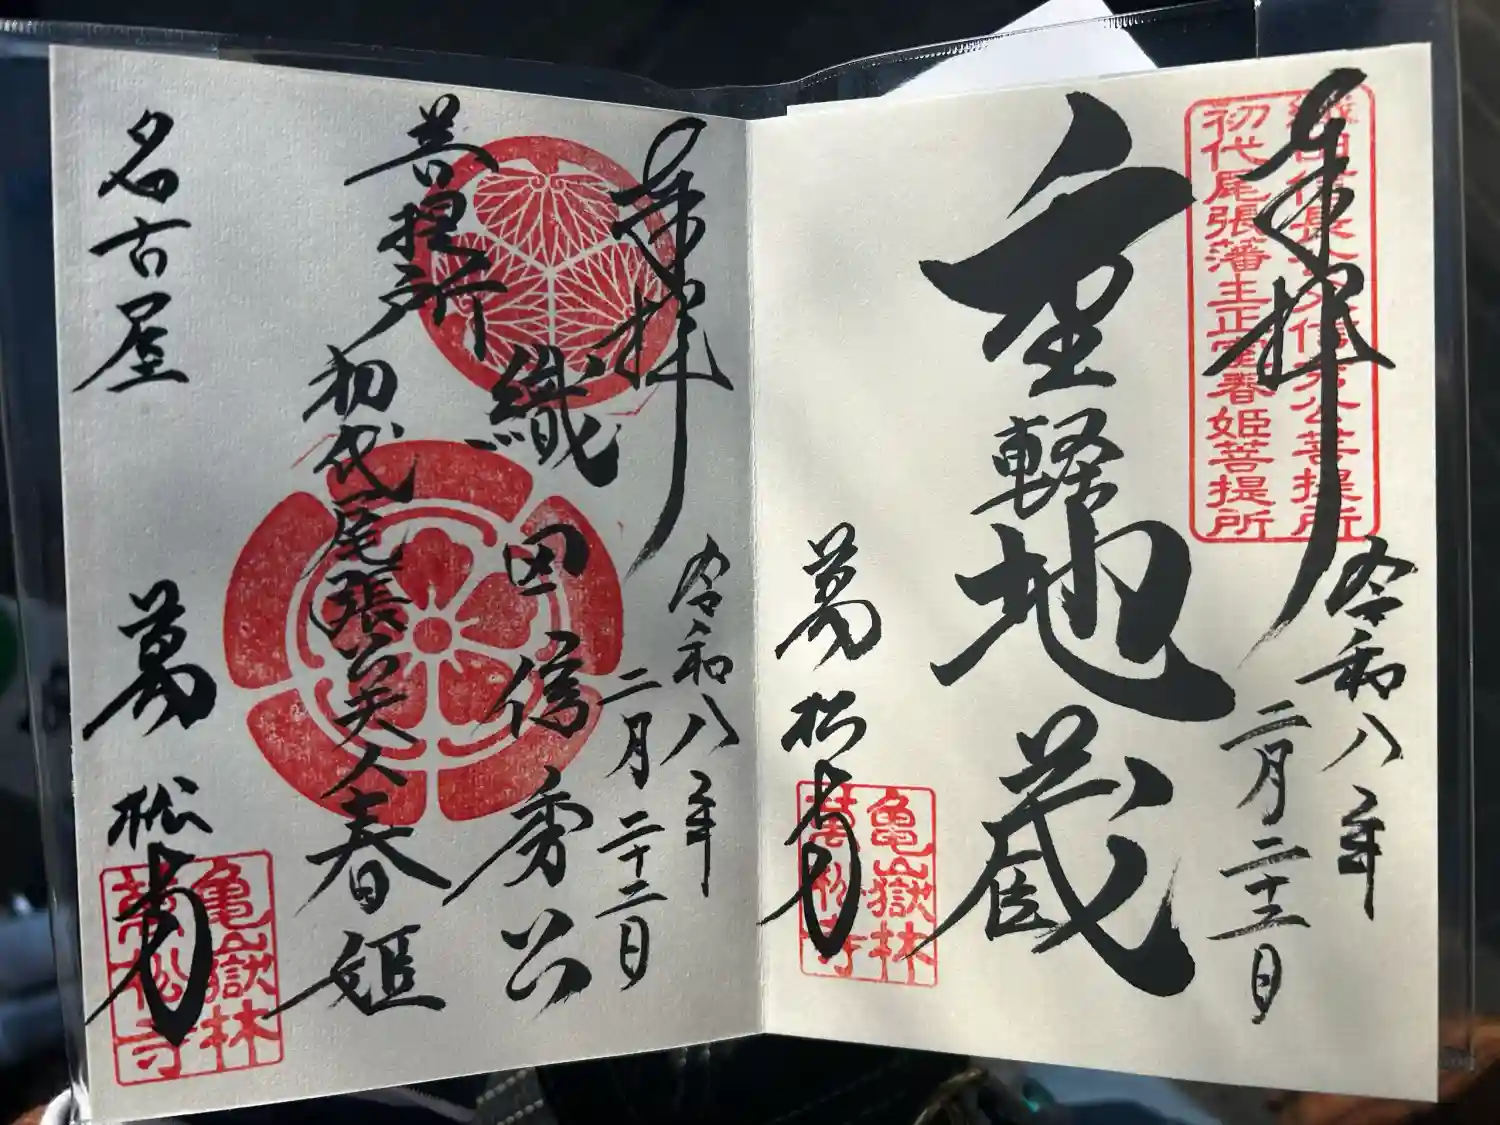 奉拝
令和八年
二月二十二日
重軽地蔵
萬松寺
織田信長公父信秀公菩提所
初代尾張藩主正室春姫菩提所
亀嶽林
萬松寺
奉拝
令和八年
二月二十二日
織田信秀公
菩提所
初代尾張公夫人春姫
名古屋
萬松寺
亀嶽林
萬松寺